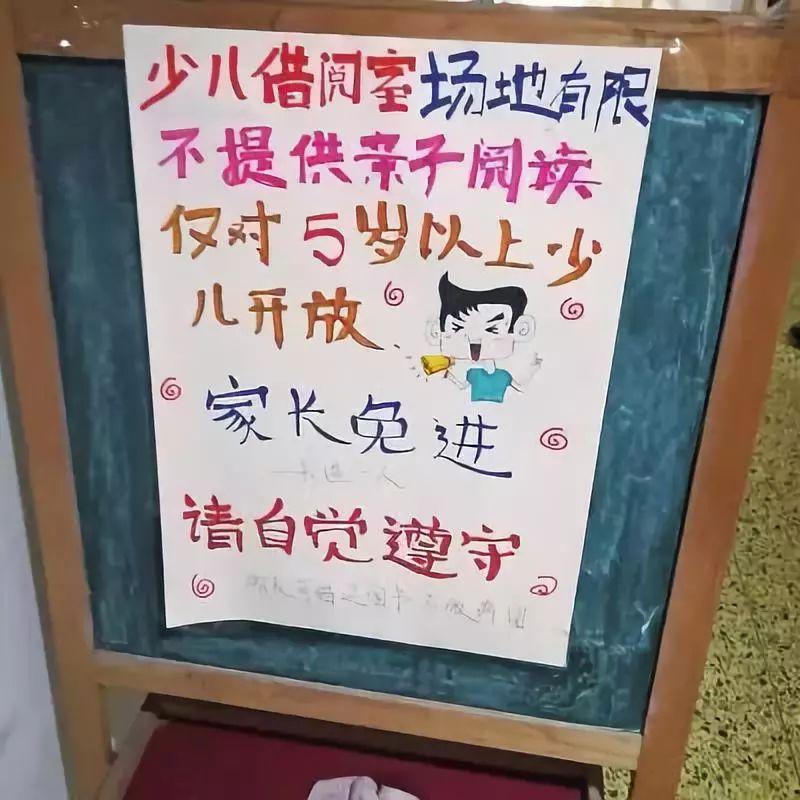 少儿借阅室场地有限
不提供亲子阅读
仅对5岁以上少
儿开放.
家长免进
一卡进一人
请自觉遵守